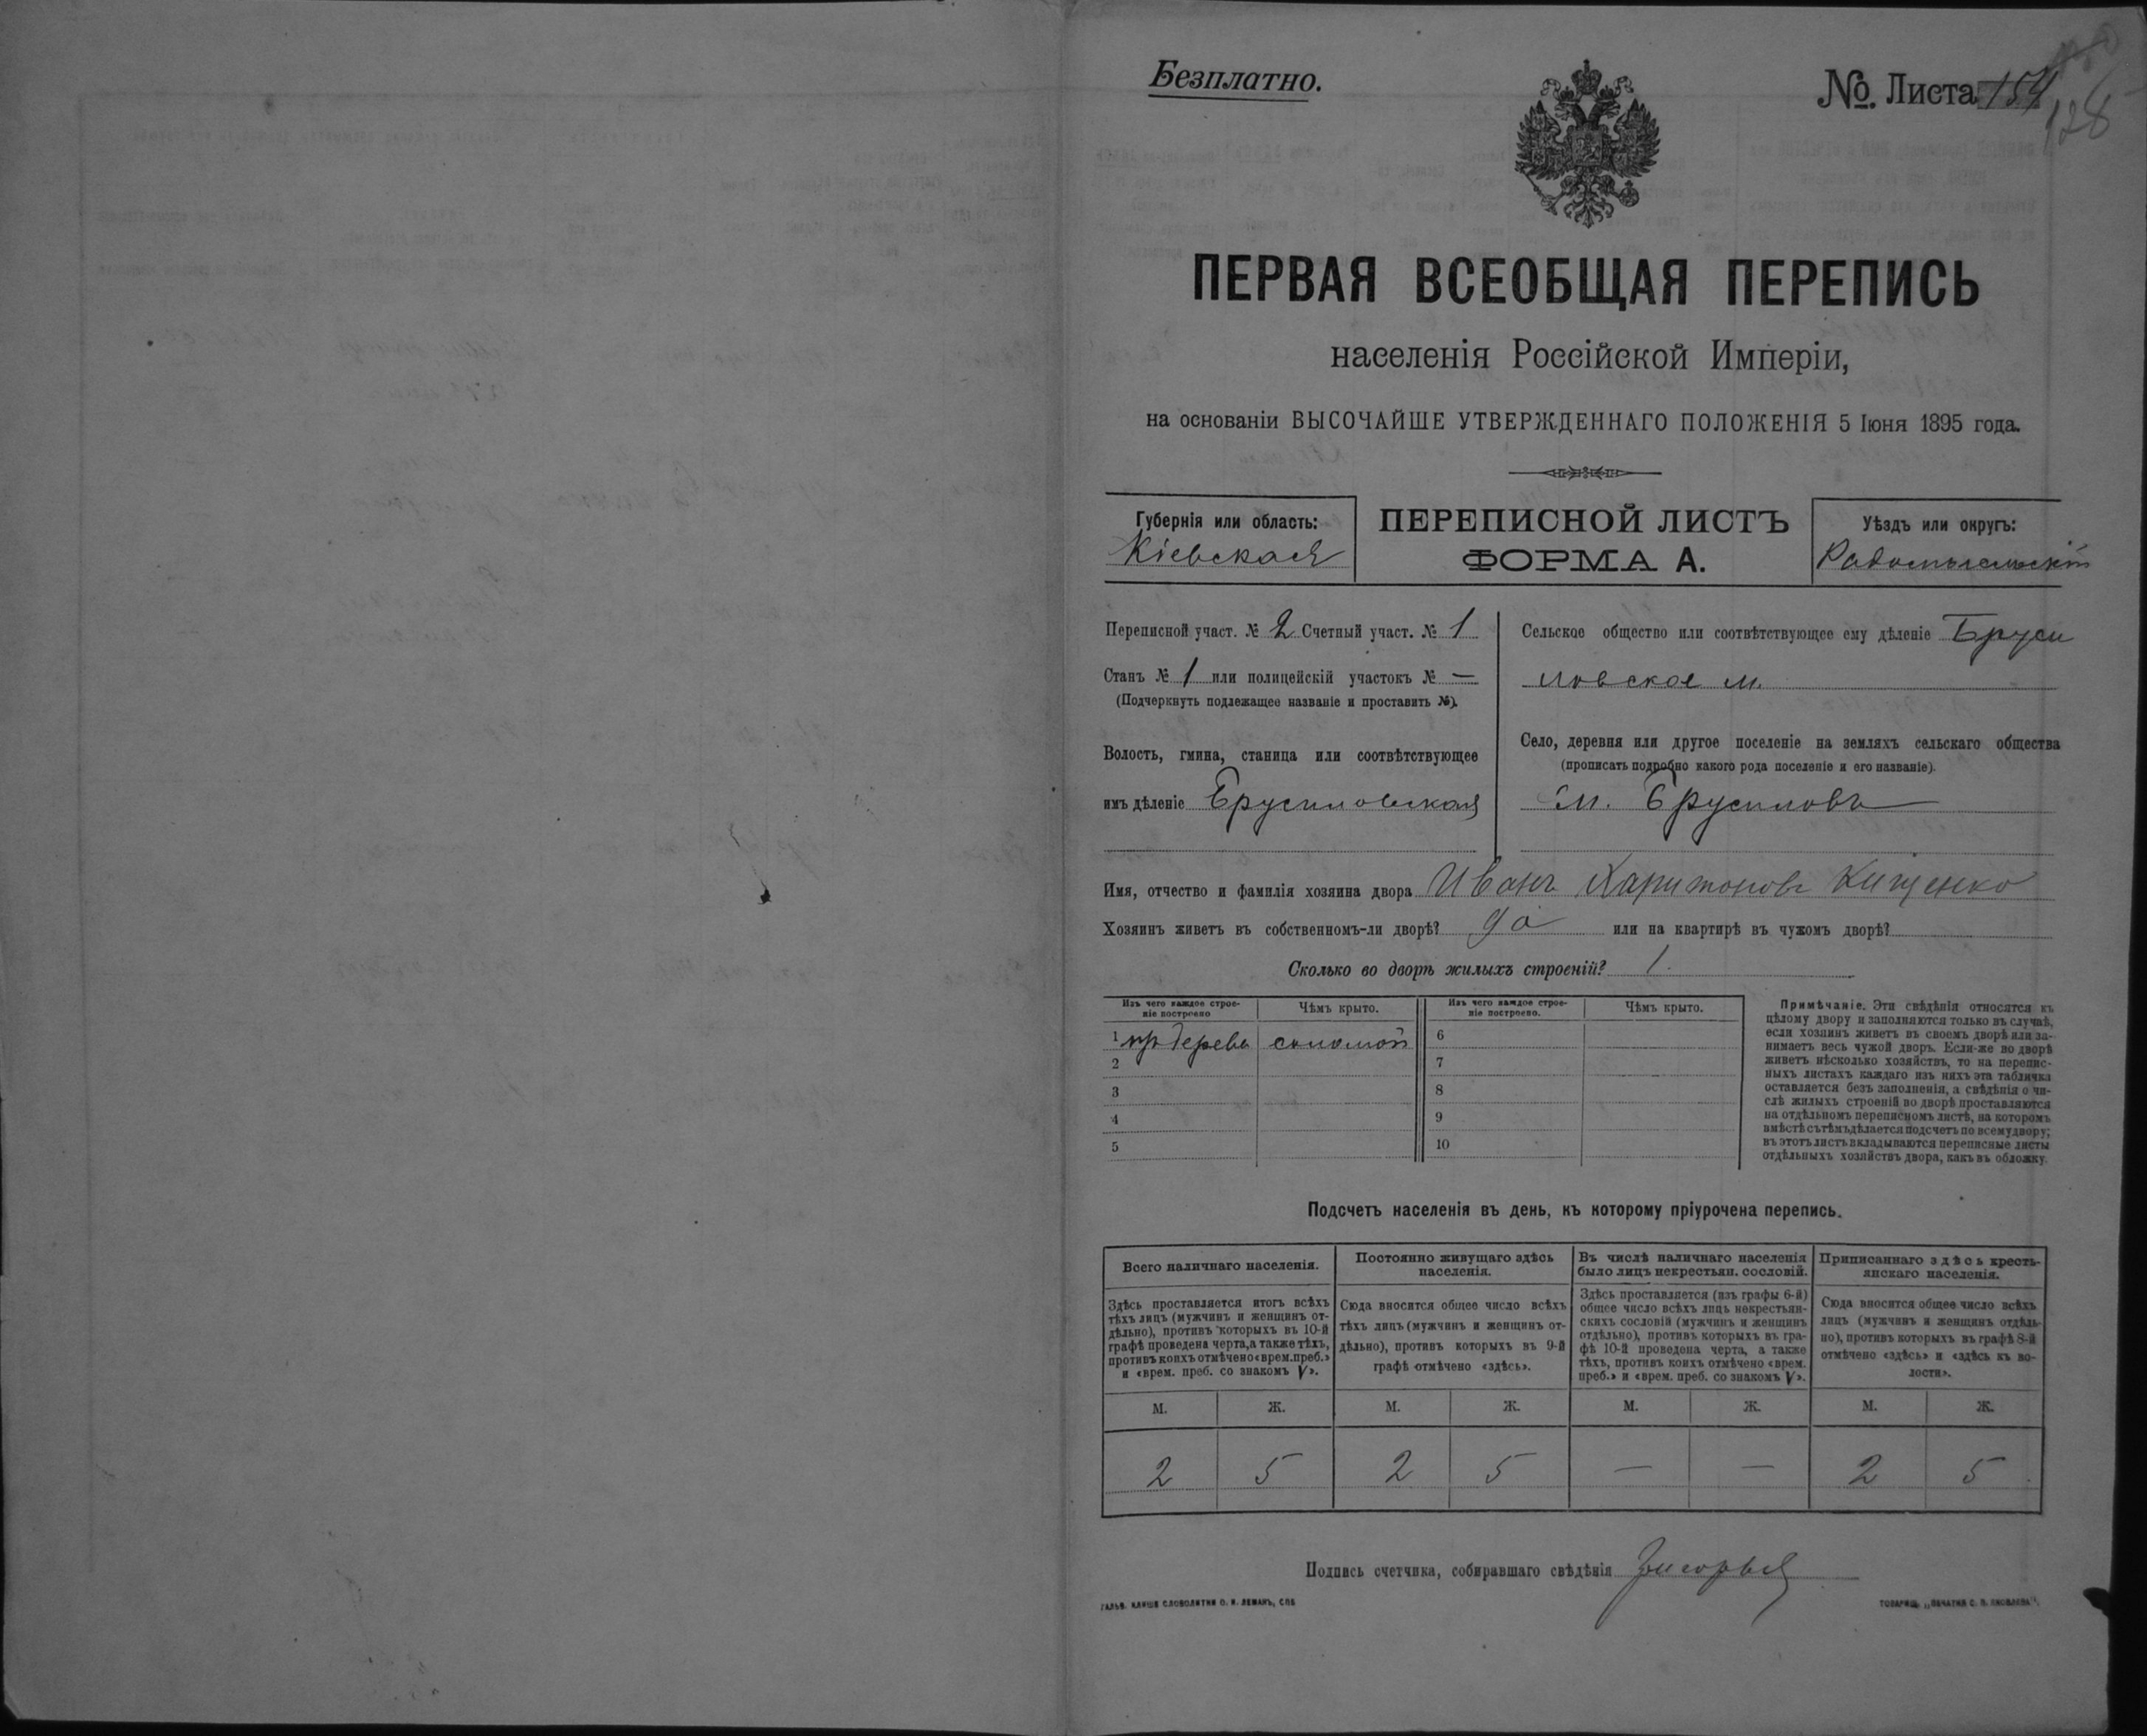 Безплатно.
№. Листа 154
128
ПЕРВАЯ ВСЕОБЩАЯ ПЕРЕПИСЬ
населенія Россійской Имперіи,
на основаніи ВЫСОЧАЙШЕ УТВЕРЖДЕННАГО ПОЛОЖЕНІЯ 5 Іюня 1895 года.
Губернія или область:
Кіевская
ПЕРЕПИСНОЙ ЛИСТЪ
ФОРМА А.
Уѣздъ или округъ:
Радомысльскій
Переписной участ. № 2 Счетный участ. № 1
Станъ № 1 или полицейскій участокъ № —
(Подчеркнуть подлежащее названіе и проставить №).
Волость, гмина, станица или соотвѣтствующее
имъ дѣленіе Брусиловская
Сельское общество или соотвѣтствующее ему дѣленіе Бруси
ловское м.
Село, деревня или другое поселеніе на земляхъ сельскаго общества
(прописать подробно какого рода поселеніе и его названіе).
м. Брусиловъ
Имя, отчество и фамилія хозяина двора Иванъ Харитоновъ Кищенко
Хозяинъ живетъ въ собственномъ-ли дворѣ? да или на квартирѣ въ чужомъ дворѣ?
Сколько во дворѣ жилыхъ строеній? 1.
Изъ чего каждое строе-
ніе построено
Чѣмъ крыто.
Изъ чего каждое строе-
ніе построено.
Чѣмъ крыто.
1 дерева соломой 6
2 7
3 8
4 9
5 10
Примѣчаніе. Эти свѣдѣнія относятся къ
цѣлому двору и заполняются только въ случаѣ,
если хозяинъ живетъ въ своемъ дворѣ или за-
нимаетъ весь чужой дворъ. Если-же во дворѣ
живетъ нѣсколько хозяйствъ, то на перепис-
ныхъ листахъ каждаго изъ нихъ эта табличка
оставляется безъ заполненія, а свѣдѣнія о чи-
слѣ жилыхъ строеній во дворѣ проставляются
на отдѣльномъ переписномъ листѣ, на которомъ
вмѣстѣ съ тѣмъ дѣлается подсчетъ по всему двору;
въ этотъ листъ вкладываются переписные листы
отдѣльныхъ хозяйствъ двора, какъ въ обложку.
Подсчетъ населенія въ день, къ которому пріурочена перепись.
Всего наличнаго населенія.
Постоянно живущаго здѣсь
населенія.
Въ числѣ наличнаго населенія
было лицъ некрестьян. сословій.
Приписаннаго здѣсь кресть-
янскаго населенія.
Здѣсь проставляется итогъ всѣхъ
тѣхъ лицъ (мужчинъ и женщинъ от-
дѣльно), противъ которыхъ въ 10-й
графѣ проведена черта, а также тѣхъ,
противъ коихъ отмѣчено «врем. преб.»
и «врем. преб. со знакомъ V».
Сюда вносится общее число всѣхъ
тѣхъ лицъ (мужчинъ и женщинъ от-
дѣльно), противъ которыхъ въ 9-й
графѣ отмѣчено «здѣсь».
Здѣсь проставляется (изъ графы 6-й)
общее число всѣхъ лицъ некрестьян-
скихъ сословій (мужчинъ и женщинъ
отдѣльно), противъ которыхъ въ гра-
фѣ 10-й проведена черта, а также
тѣхъ, противъ коихъ отмѣчено «врем.
преб.» и «врем. преб. со знакомъ V».
Сюда вносится общее число всѣхъ
лицъ (мужчинъ и женщинъ отдѣль-
но), противъ которыхъ въ графѣ 8-й
отмѣчено «здѣсь» и «здѣсь къ во-
лости».
М. Ж. М. Ж. М. Ж. М. Ж.
2 5 2 5 — — 2 5
Подпись счетчика, собиравшаго свѣдѣнія
ГАЛЬВ. КЛИШЕ СЛОВОЛИТНИ О. И. ЛЕМАНЪ, СПБ
ТОВАРИЩ. „ПЕЧАТНЯ С. П. ЯКОВЛЕВА".